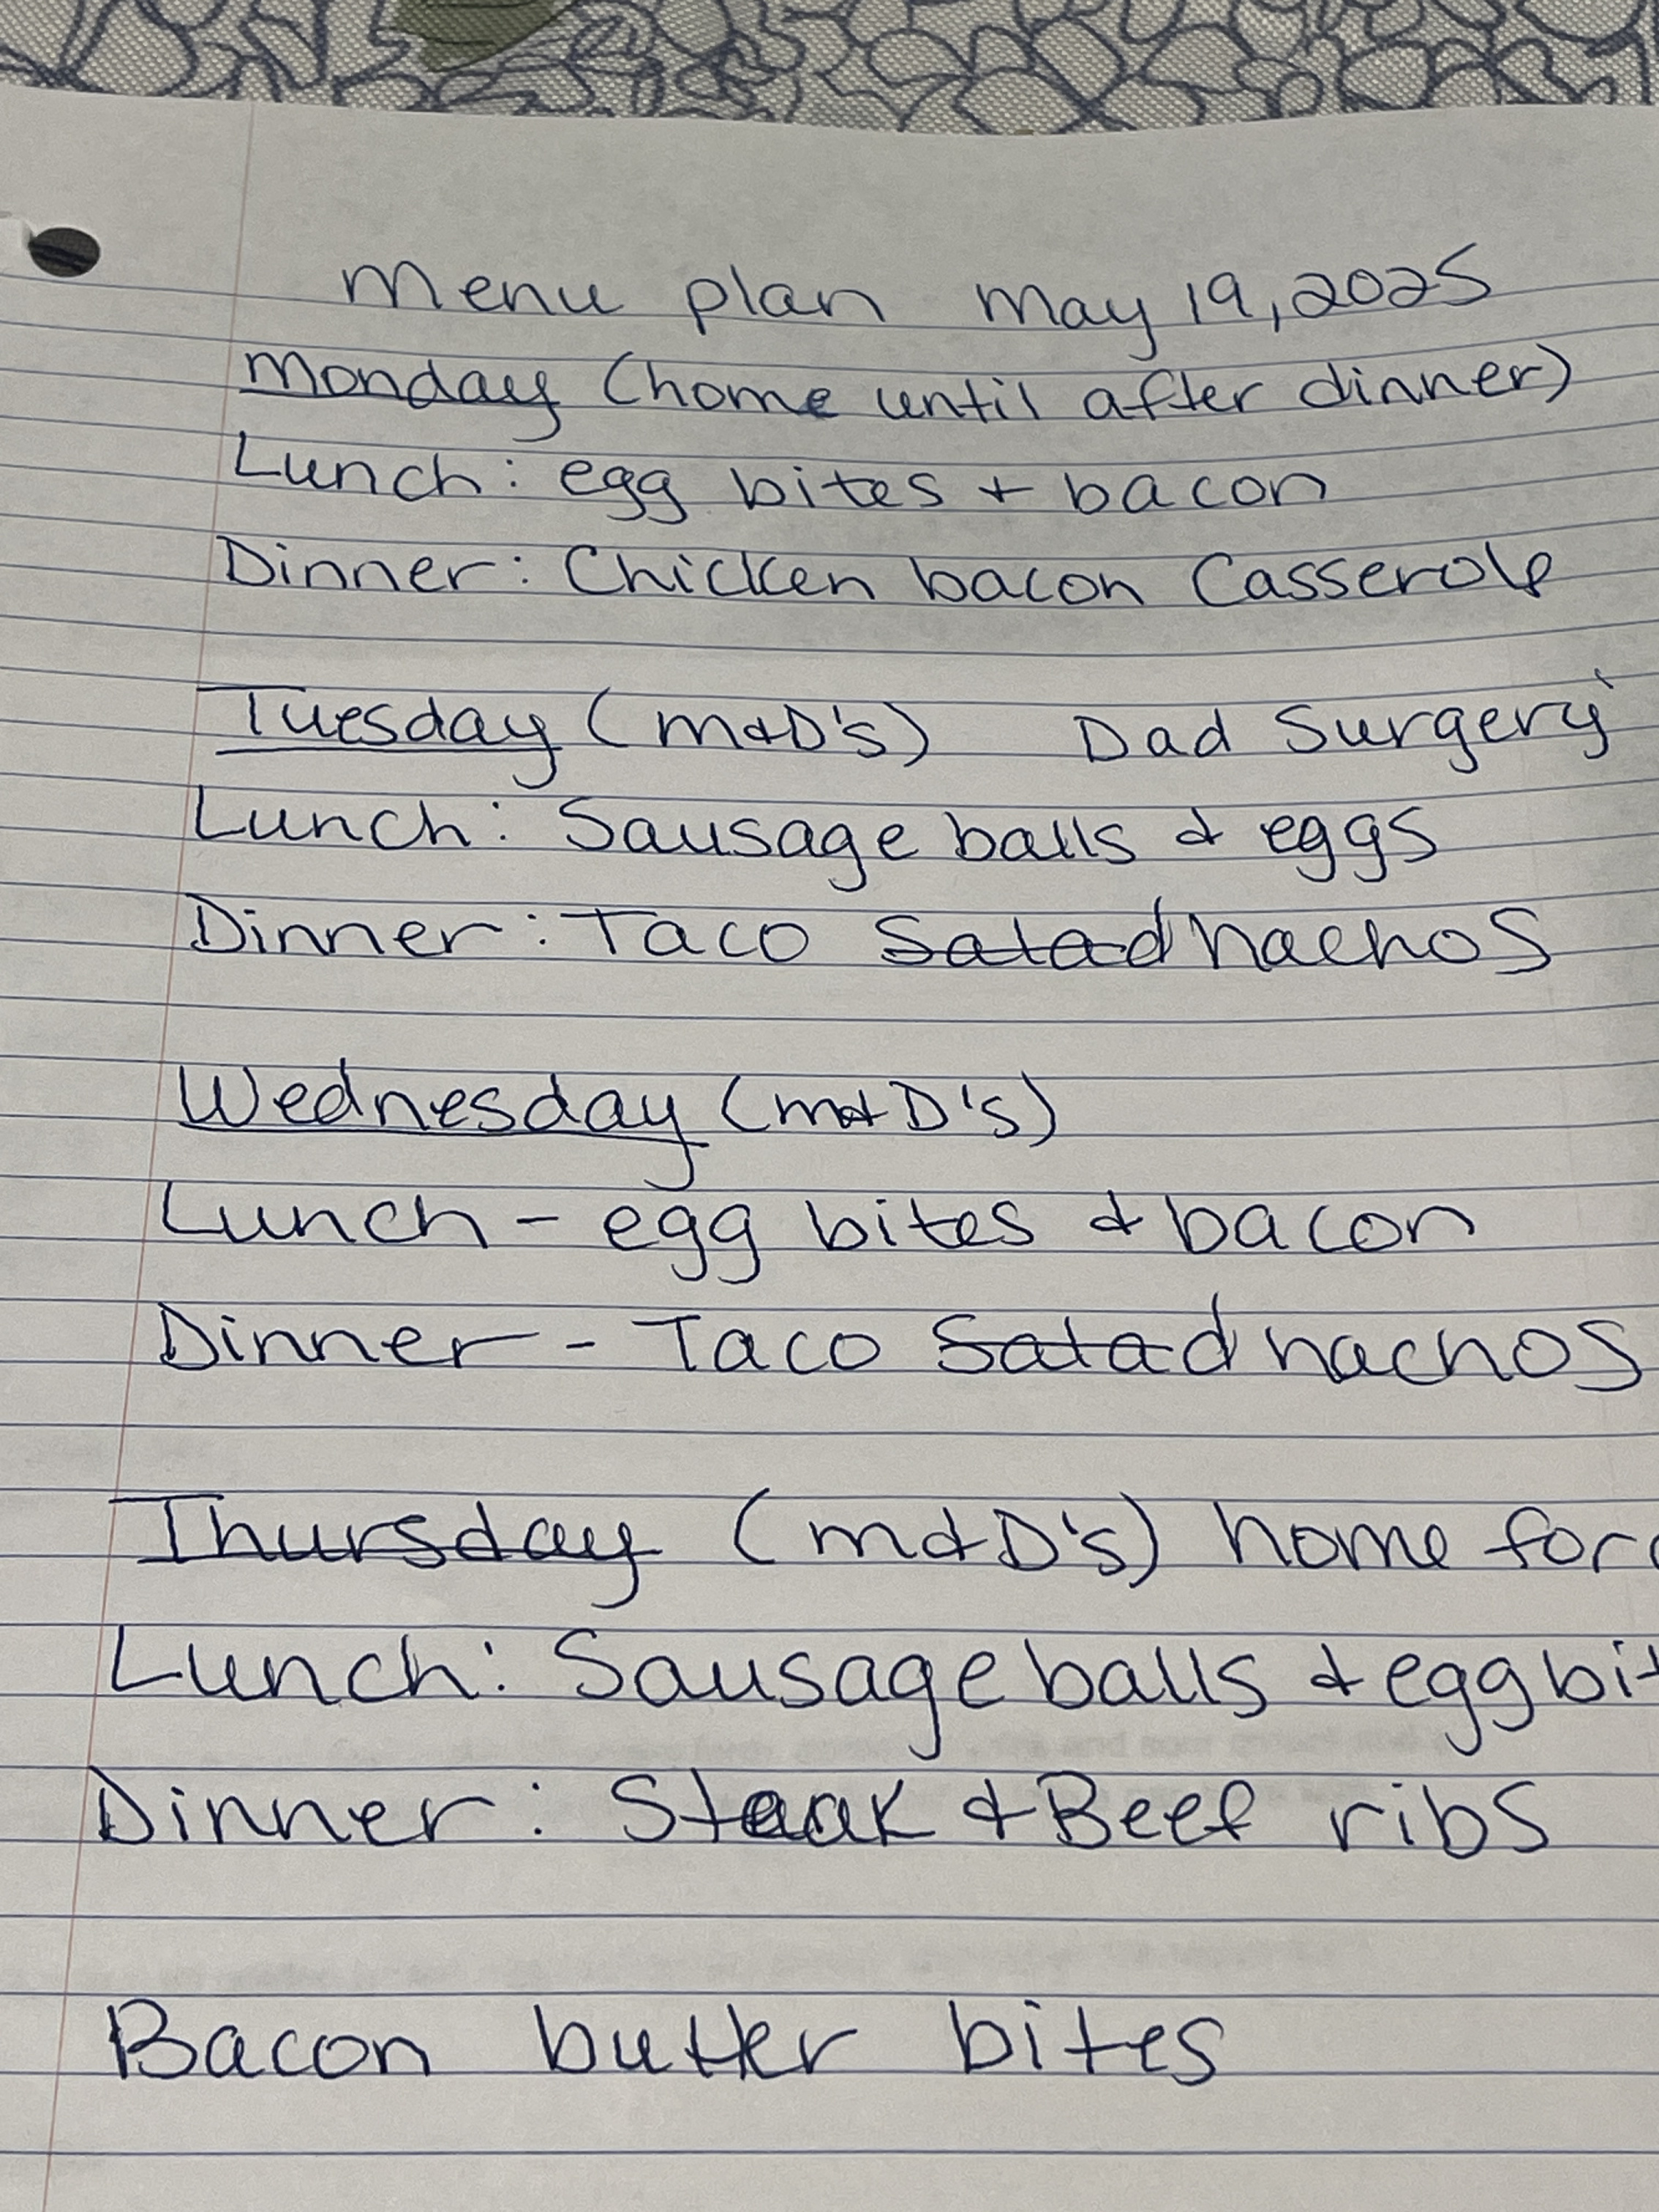 Menu plan May 19, 2025
Monday (home until after dinner)
Lunch: egg bites + bacon
Dinner: Chicken bacon Casserole
Tuesday (M+D's) Dad Surgery
Lunch: Sausage balls + eggs
Dinner: Taco Salad nachos
Wednesday (M+D's)
Lunch - egg bites + bacon
Dinner - Taco Salad nachos
Thursday (M+D's) home for
Lunch: Sausage balls + egg bit
Dinner: Steak + Beef ribs
Bacon butter bites